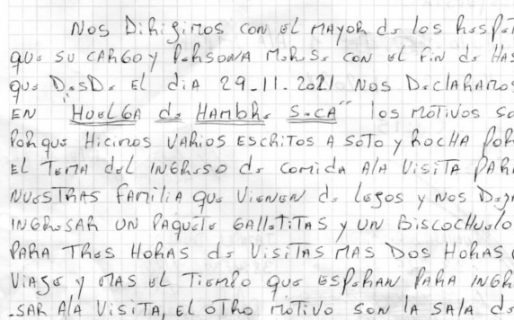 NOS DIRIGIMOS CON EL MAYOR de los RESPET
que SU CARGO y PERSONA MERESE CON el FIN de HAS
que DESDE EL dIA 29-11-2021 NOS DECLARAMOS
EN "HUELGA de HAMBRE SECA" los MOTIVOS SO
PORque HICIMOS VARIOS ESCRITOS A SOTO y ROCHA POR
EL TEMA del INGRESO de COMIDA AlA VISITA PARA
NUESTRAS FAMILIA que VIENEN de LEJOS y NOS DEJA
INGRESAR UN PAQUETE GALLETITAS y UN BISCOCHUELO
PARA TRES HORAS de VISITAS MAS DOS HORAS
VIAJE y MAS EL TIEMPO que ESPERAN PARA INGR
-SAR AlA VISITA, EL OTRO MOTIVO SON lA SAlA de